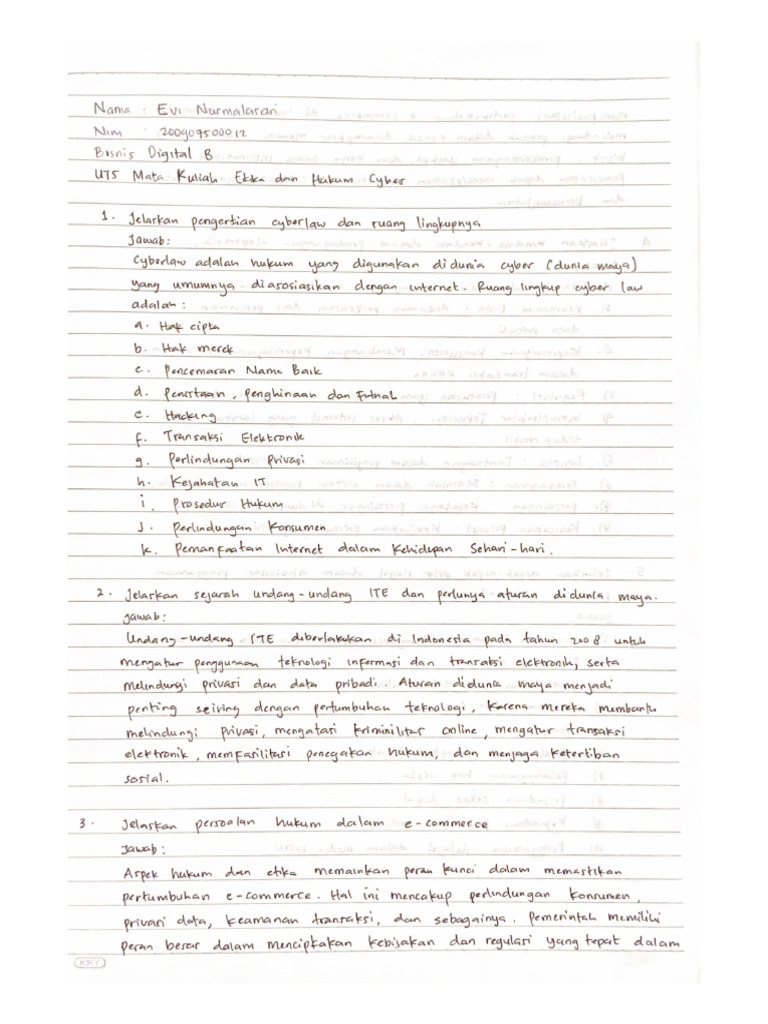 Nama : Evi Nurmalasari
Nim : 200907500012
Bisnis Digital B
UTS Mata Kuliah Etika dan Hukum Cyber
1. Jelaskan pengertian cyberlaw dan ruang lingkupnya
Jawab:
Cyberlaw adalah hukum yang digunakan di dunia cyber (dunia maya)
yang umumnya diasosiasikan dengan internet. Ruang lingkup cyber law
adalah :
a. Hak cipta
b. Hak merek
c. Pencemaran Nama Baik
d. Penistaan, Penghinaan dan Fitnah
e. Hacking
f. Transaksi Elektronik
g. Perlindungan Privasi
h. Kejahatan IT
i. Prosedur Hukum
j. Perlindungan Konsumen
k. Pemanfaatan Internet dalam Kehidupan Sehari-hari.
2. Jelaskan sejarah undang-undang ITE dan perlunya aturan di dunia maya.
Jawab:
Undang-undang ITE diberlakukan di Indonesia pada tahun 2008 untuk
mengatur penggunaan teknologi informasi dan transaksi elektronik, serta
melindungi privasi dan data pribadi. Aturan di dunia maya menjadi
penting seiring dengan pertumbuhan teknologi, karena mereka membantu
melindungi privasi, mengatasi kriminilitas online, mengatur transaksi
elektronik, memfasilitasi penegakan hukum, dan menjaga ketertiban
sosial.
3. Jelaskan persoalan hukum dalam e-commerce
Jawab:
Aspek hukum dan etika memainkan peran kunci dalam memastikan
pertumbuhan e-commerce. Hal ini mencakup perlindungan konsumen,
privasi data, keamanan transaksi, dan sebagainya. Pemerintah memiliki
peran besar dalam menciptakan kebijakan dan regulasi yang tepat dalam
KIKY